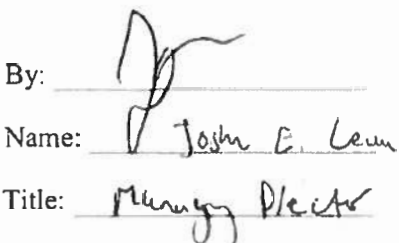 By:
Name: Josh E.
Title: Managing Director